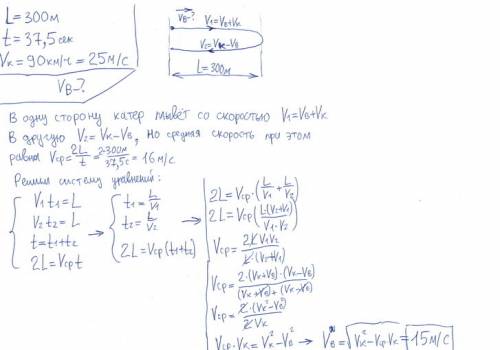 L=300м
t=37,5сек
Vк=90км/ч=25м/с
Vв-?
Vв-?
V₁=Vв+Vк
V₂=Vк-Vв
L=300м
В одну сторону катер плывёт со скоростью V₁=Vв+Vк
В другую V₂=Vк-Vв, Но средняя скорость при этом
равна Vср=2L/t=2·300м/37,5с=16м/с
Решим систему уравнений:
V₁t₁=L
V₂t₂=L
t=t₁+t₂
2L=Vср t
t₁=L/V₁
t₂=L/V₂
2L=Vср(t₁+t₂)
2L=Vср·(L/V₁+L/V₂)
2L=Vср(L(V₂+V₁)/V₁·V₂)
Vср=2L V₁V₂/L·(V₂+V₁)
Vср=2·(Vк+Vв)·(Vк-Vв)/(Vк+Vв)+(Vк-Vв)
Vср=2·(Vк²-Vв²)/2Vк
Vср·Vк=Vк²-Vв² → Vв=√Vк²-Vср Vк=15м/с